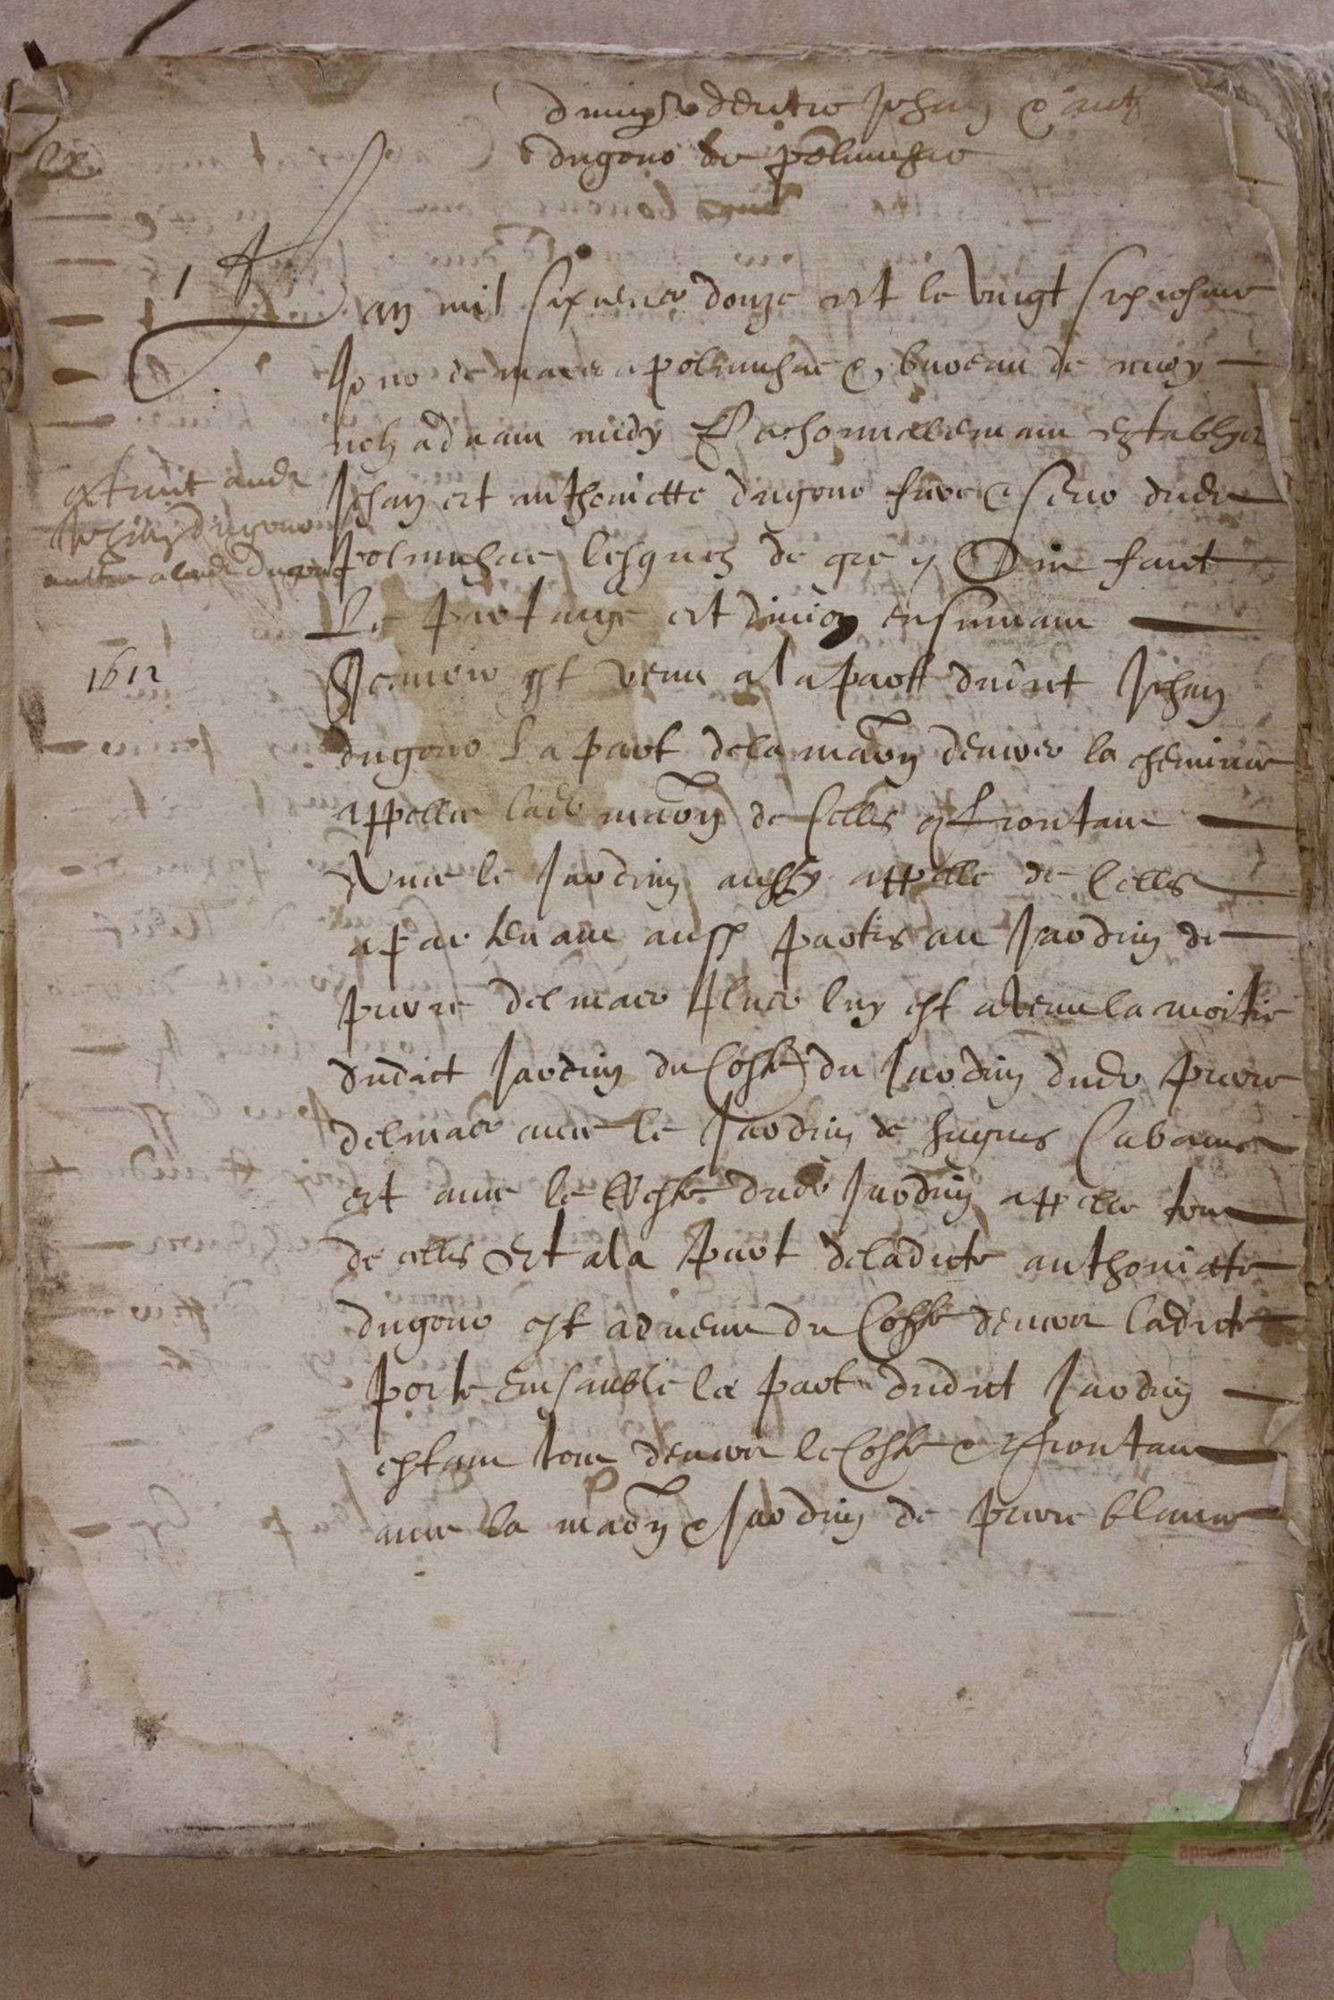 division dentre Jehan & anth
dugone de polminhac
1
Lan mil six cens douze et le vingt sixiesme
Jour de mars a polminhac & bureau de moy
nore advant midy personnellement establys
Jehan et anthoniette dugone frere & seur dudit
polminhac lesquelz de gre ont faict
Le partaige et division ensuivant
Premier est venu a la part dudict Jehan
dugone La part dela maison devers la cheminee
appellee lade maison de celles confrontant
Avec le Jardin aussy appelle de celles
apartenant aussi partis au Jardin de
pierre delmas Plus luy est advenu la moitie
dudict Jardin du Coste du Jardin dudit pierre
delmas avec le Jardin de hugues Cabanes
et avec le Reste dudit Jardin appelle tout
de celles Et a la Part de ladicte anthoniette
dugone est advenu du Coste devers ladicte
porte ensamble la part dudict Jardin
estant tout devers le Coste & confrontant
avec la maison & Jardin de pierre blanc
extraict audit
Jehan dugone
aultre a lade dugone
1612
apro